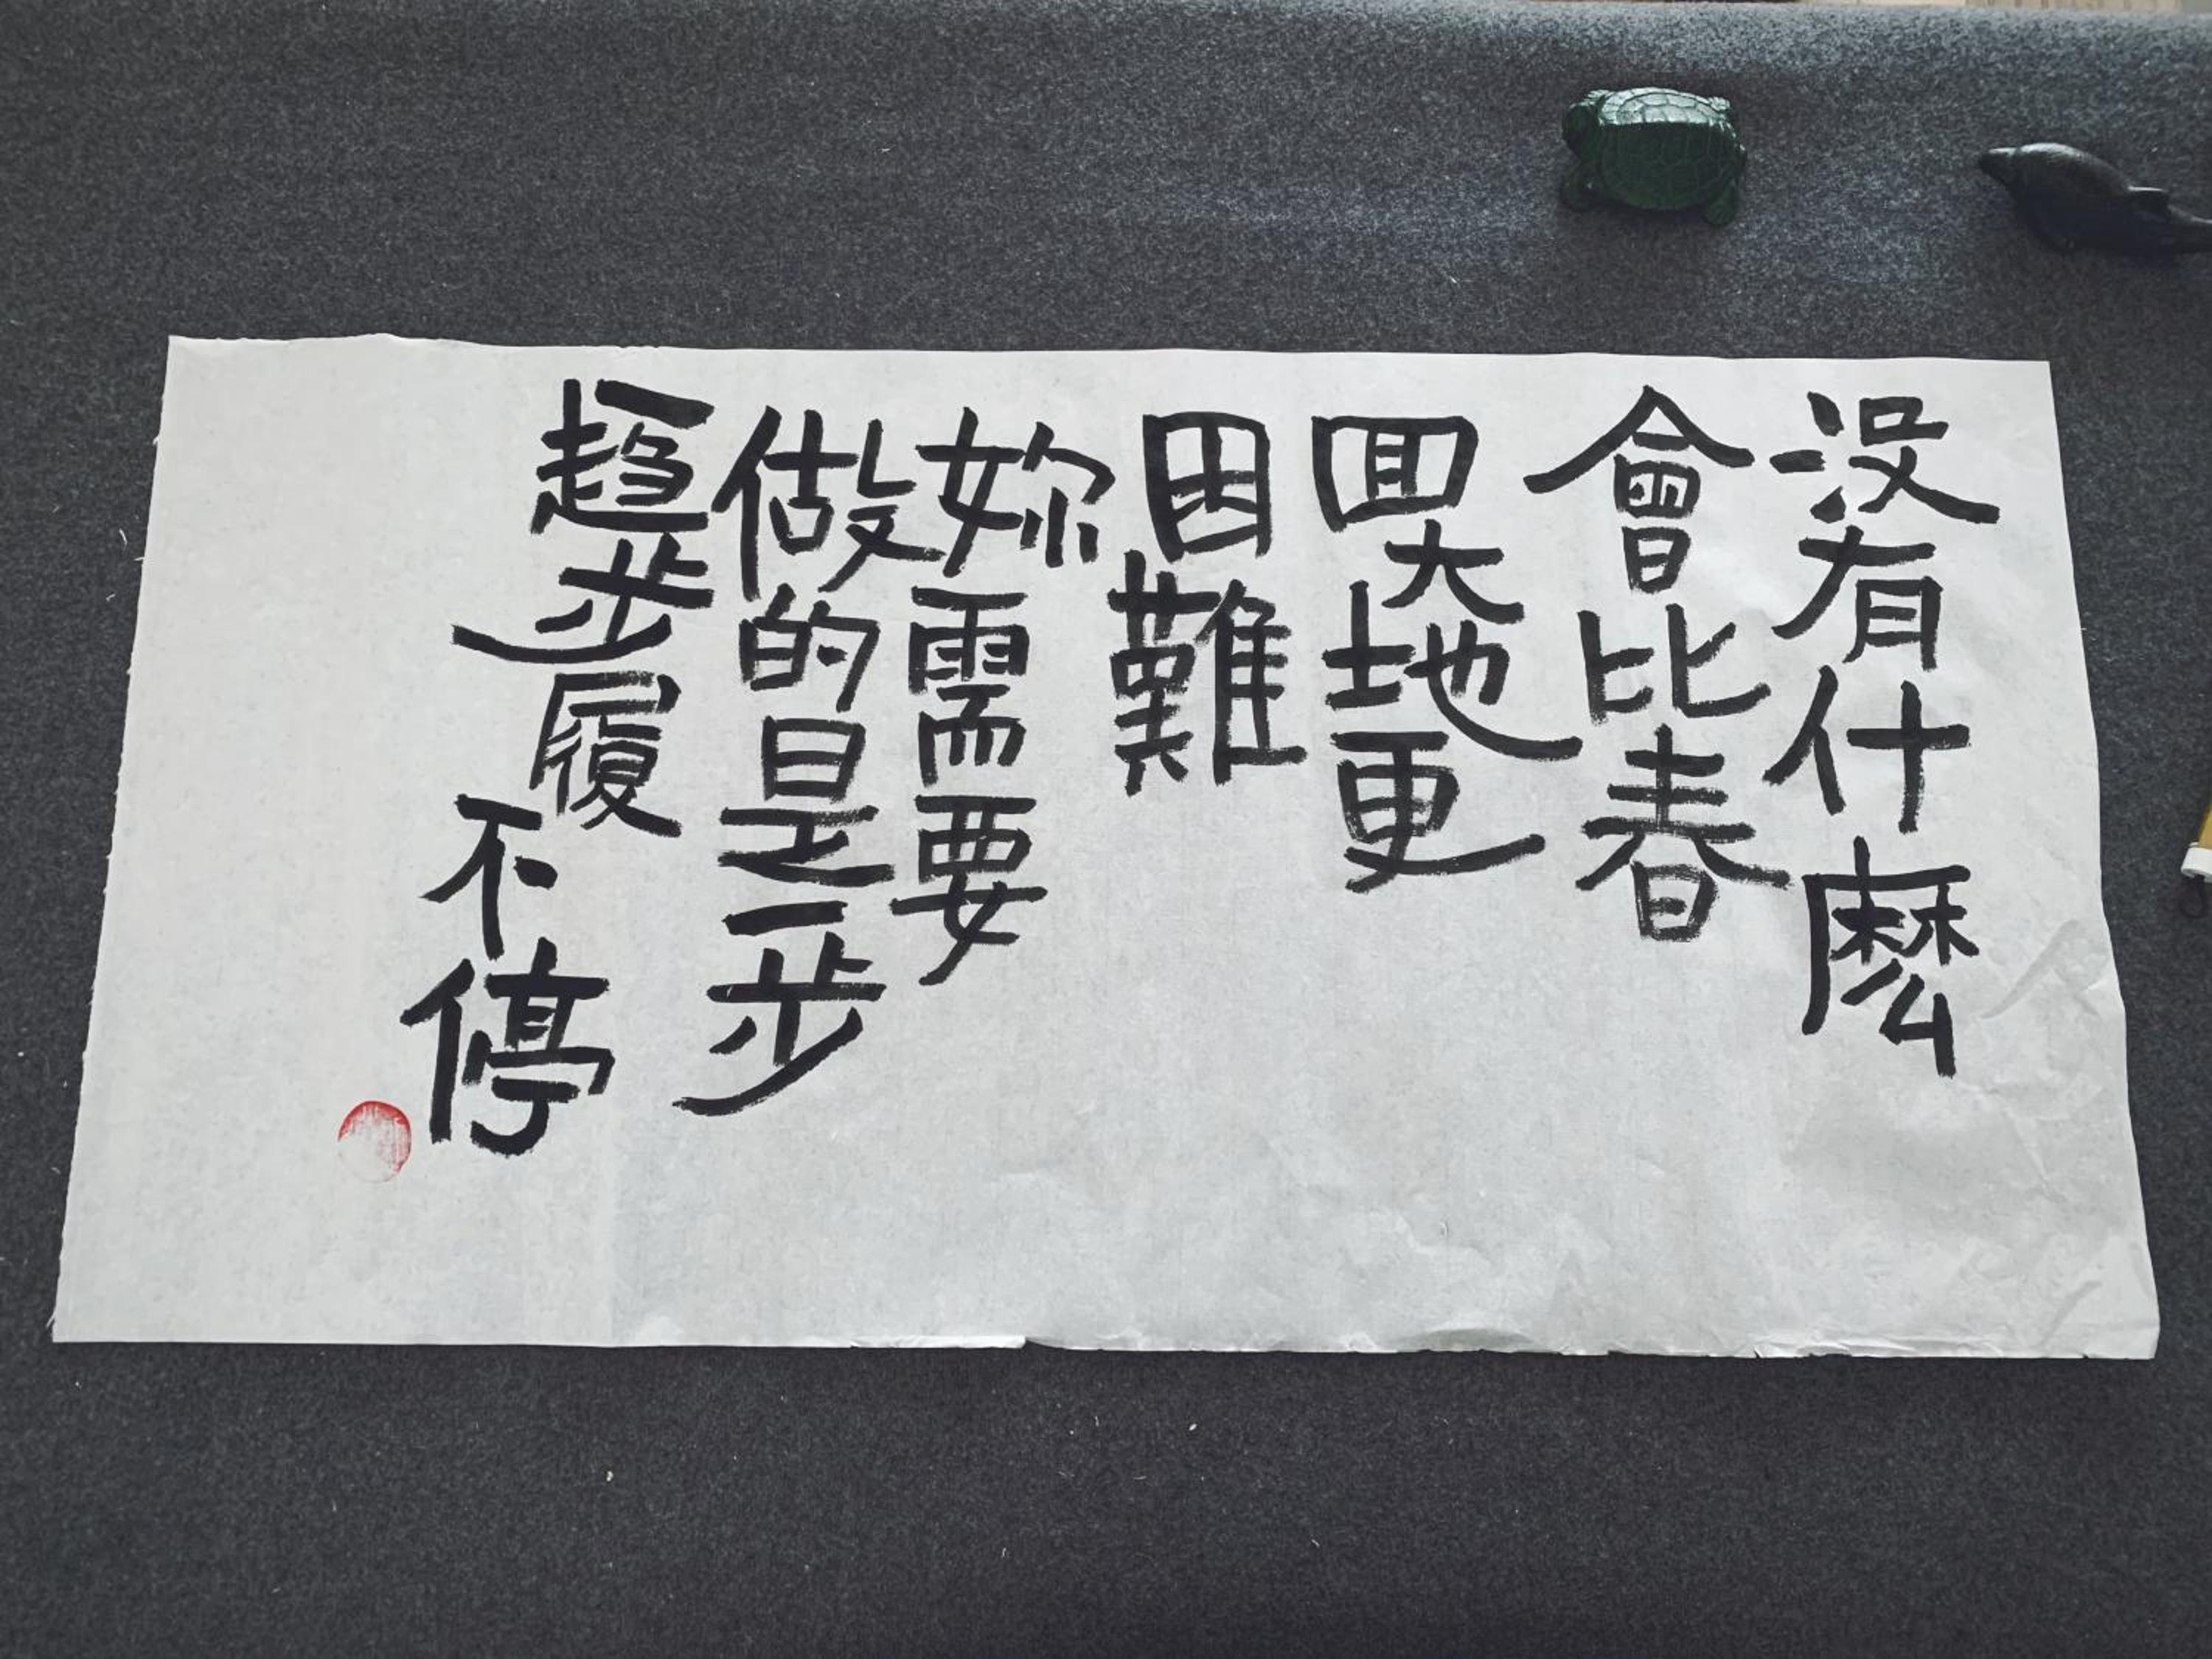 没有什麽
會比春
回大地更
困難
妳需要
做的是一步
趋步履
不停